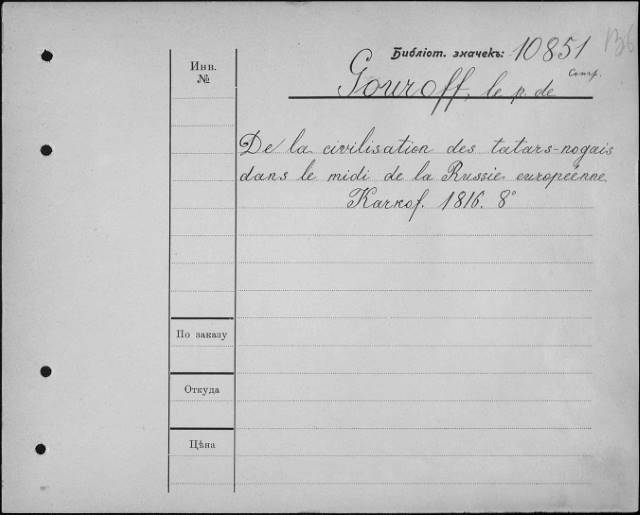 Библіот. значекъ: 10851
Инв.
№
Gouroff, le p. de
De la civilisation des tatars-nogais
dans le midi de la Russie européenne
Karkof. 1816. 8°
По заказу
Откуда
Цѣна